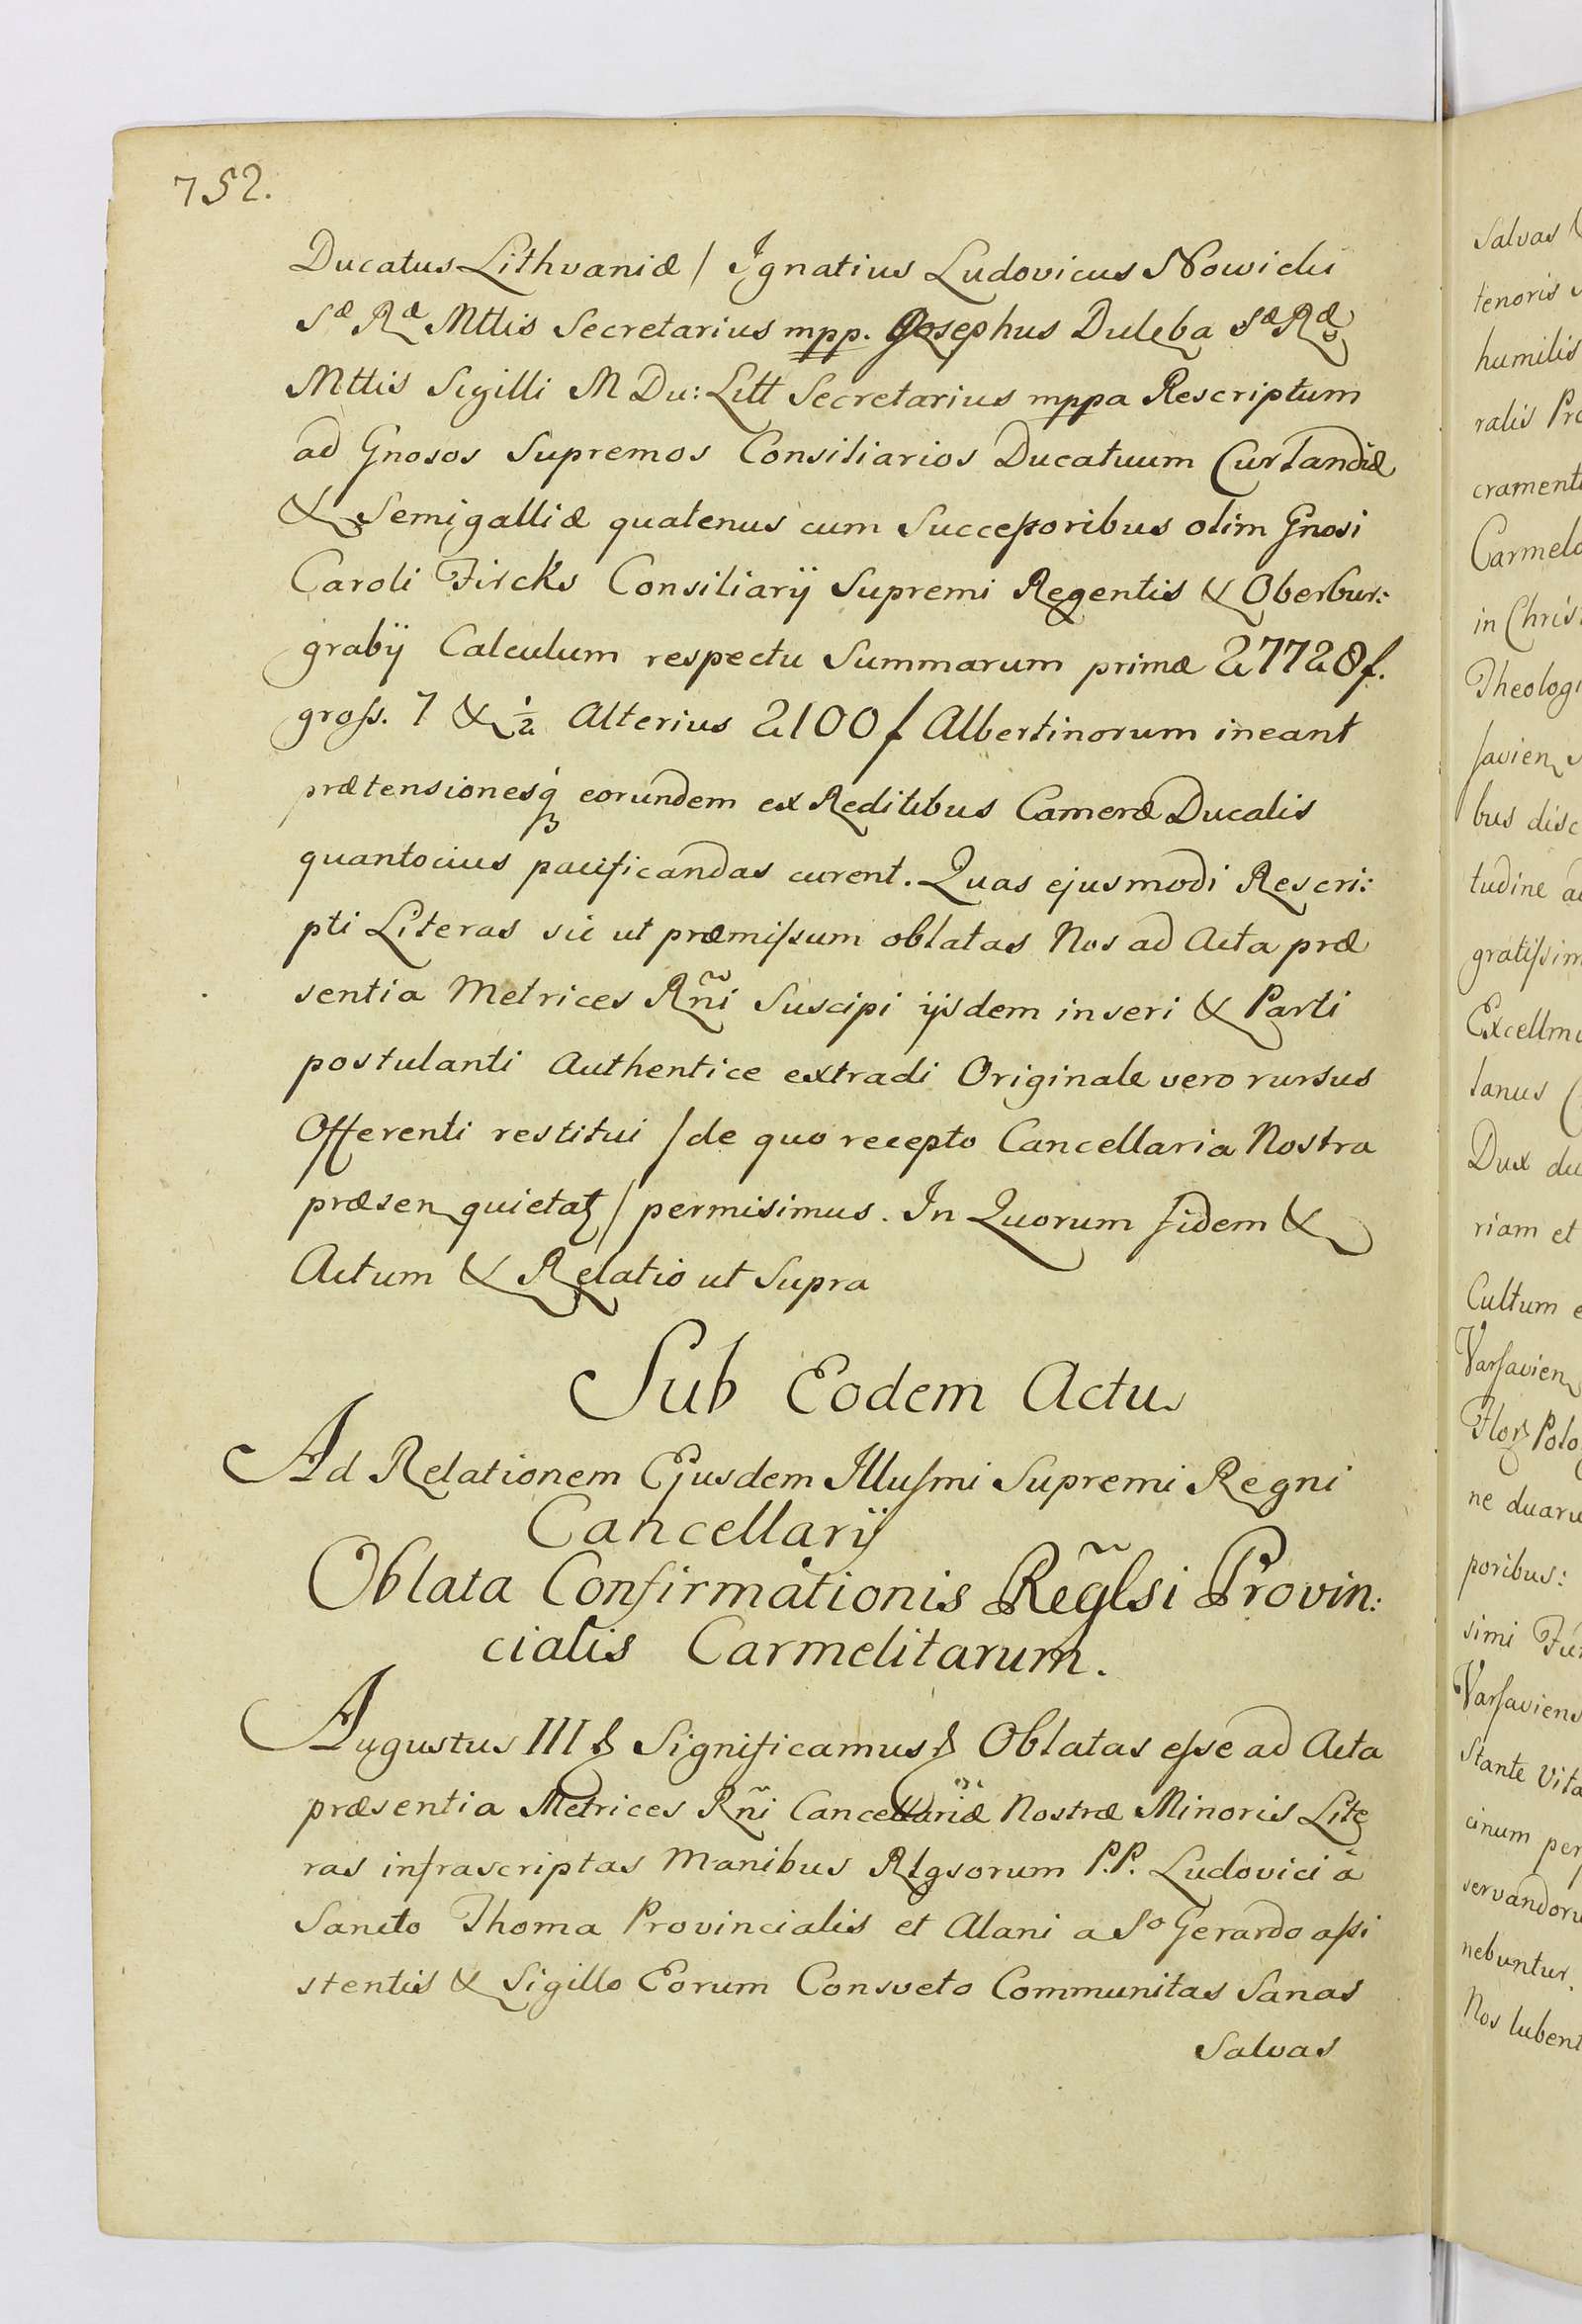 752.
Ducatus Lithvaniæ / Ignatius Ludovicus Nowicki
Sæ Ræ Mttis Secretarius mpp. Josephus Duleba Sæ Ræ
Mttis Sigilli M Du: Litt Secretarius mppa Rescriptum
ad Gnosos Supremos Consiliarios Ducatuum Curlandiæ
& Semigalliæ quatenus cum Successoribus olim Gnosi
Caroli Fircks Consiliarÿ Supremi Regentis & Oberbur:
grabÿ Calculum respectu Summarum primæ 27728 f.
gross. 7 & ½ Alterius 2100 f Albertinorum ineant
prætensionesq́ eorundem ex Reditibus Cameræ Ducalis
quantocius pacificandas curent. Quas ejusmodi Rescri:
pti Literas sic ut præmissum oblatas Nos ad Acta præ
sentia Metrices Rñi Suscipi ijsdem inseri & Parti
postulanti Authentice extradi Originale vero rursus
Offerenti restitui / de quo recepto Cancellaria Nostra
præsen quietat / permisimus. In Quorum fidem &
Actum & Relatio ut Supra
Sub Eodem Actu
Ad Relationem Ejusdem Illusmi Supremi Regni
Cancellarÿ
Oblata Confirmationis Reg̃lsi Provin:
cialis Carmelitarum.
Augustus III & Significamus & Oblatas esse ad Acta
præsentia Metrices Rñi Cancellariæ Nostræ Minoris Lite
ras infrascriptas Manibus Rlgsorum P.P. Ludovici à
Sancto Thoma Provincialis et Alani a So Gerardo assi
stentis & Sigillo Eorum Consveto Communitas Sanas
Salvas
Salvas
tenoris
humilis
ralis
cramenti
in
bus
tudine
tanus
Dux
riam et
Cultum
Varsavien
ne
poribus:
simi
Stante
cinum
nebuntur.
Nos